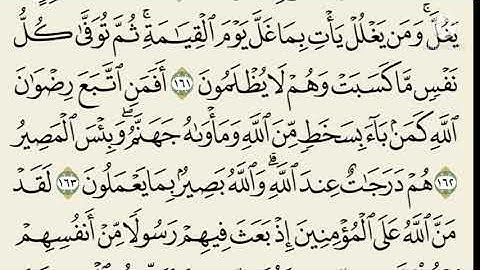 يَغُلَّ ۚ وَمَن يَغْلُلْ يَأْتِ بِمَا غَلَّ يَوْمَ الْقِيَامَةِ ۚ ثُمَّ تُوَفَّىٰ كُلُّ
نَفْسٍ مَّا كَسَبَتْ وَهُمْ لَا يُظْلَمُونَ ١٦١ أَفَمَنِ اتَّبَعَ رِضْوَانَ
اللَّهِ كَمَن بَاءَ بِسَخَطٍ مِّنَ اللَّهِ وَمَأْوَاهُ جَهَنَّمُ ۖ وَبِئْسَ الْمَصِيرُ
١٦٢ هُمْ دَرَجَاتٌ عِندَ اللَّهِ ۗ وَاللَّهُ بَصِيرٌ بِمَا يَعْمَلُونَ ١٦٣ لَقَدْ
مَنَّ اللَّهُ عَلَى الْمُؤْمِنِينَ إِذْ بَعَثَ فِيهِمْ رَسُولًا مِّنْ أَنفُسِهِمْ